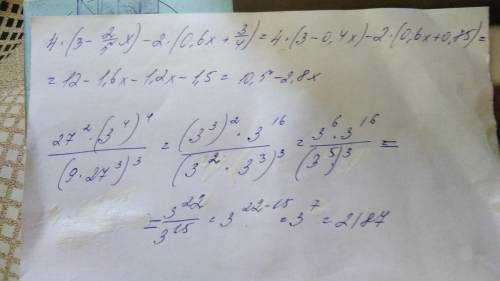 4·(3-2/5x)-2·(0,6x+3/4)=4·(3-0,4x)-2·(0,6x+0,85)=
=12-1,6x-1,2x-1,5=10,5-2,8x
27²·(3⁴)⁴/(9·27³)³=(3³)²·3¹⁶/(3²·3³)³=3⁶·3¹⁶/(3⁵)³=
=3²²/3¹⁵=3²²⁻¹⁵=3⁷=2187